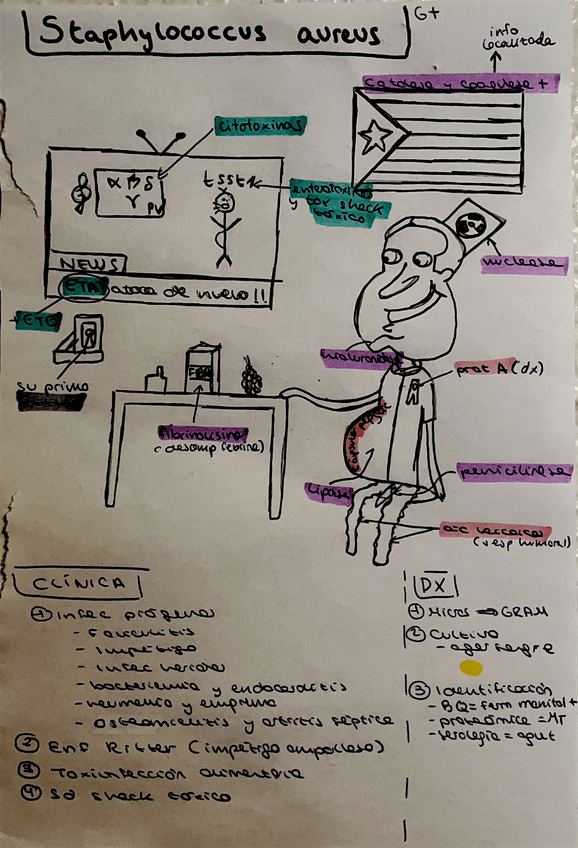 Staphylococcus aureus
G+
info
localizada
Catalasa y coagulasa +
citotoxinas
α β δ
γ PV
tsst1
enterotoxinas
y tox shock
tóxico
NEWS
ETA ataca de nuevo!!
+ETB
su primo
nucleasa
prot A (dx)
Fibrinolisina
(descomp fibrina)
cápsula
penicilinasa
lipasa
(resp humoral)
CLÍNICA
① Infec piógenas
- Foliculitis
- Impétigo
- Infec heridas
- bacteriemia y endocarditis
- neumonía y empiema
- osteomielitis y artritis séptica
② Enf Ritter (impétigo ampolloso)
③ Toxiinfección alimentaria
④ Sd shock tóxico
DX
① Micros ⇒ GRAM
② Cultivo
- agar sangre
③ Identificación
- BQ = ferm manitol +
- proteómica = MT
- serología = aglut